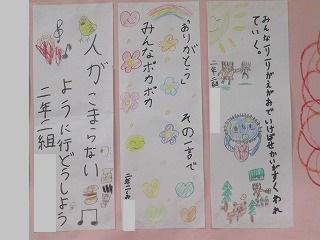 みんな一人一りがえがおでいけばせかいがすくわれ
ていく。
二年二組
「ありがとう」 その一言で
みんなポカポカ
二年二くみ
人がこまらない
ように行どうしよう
二年二組